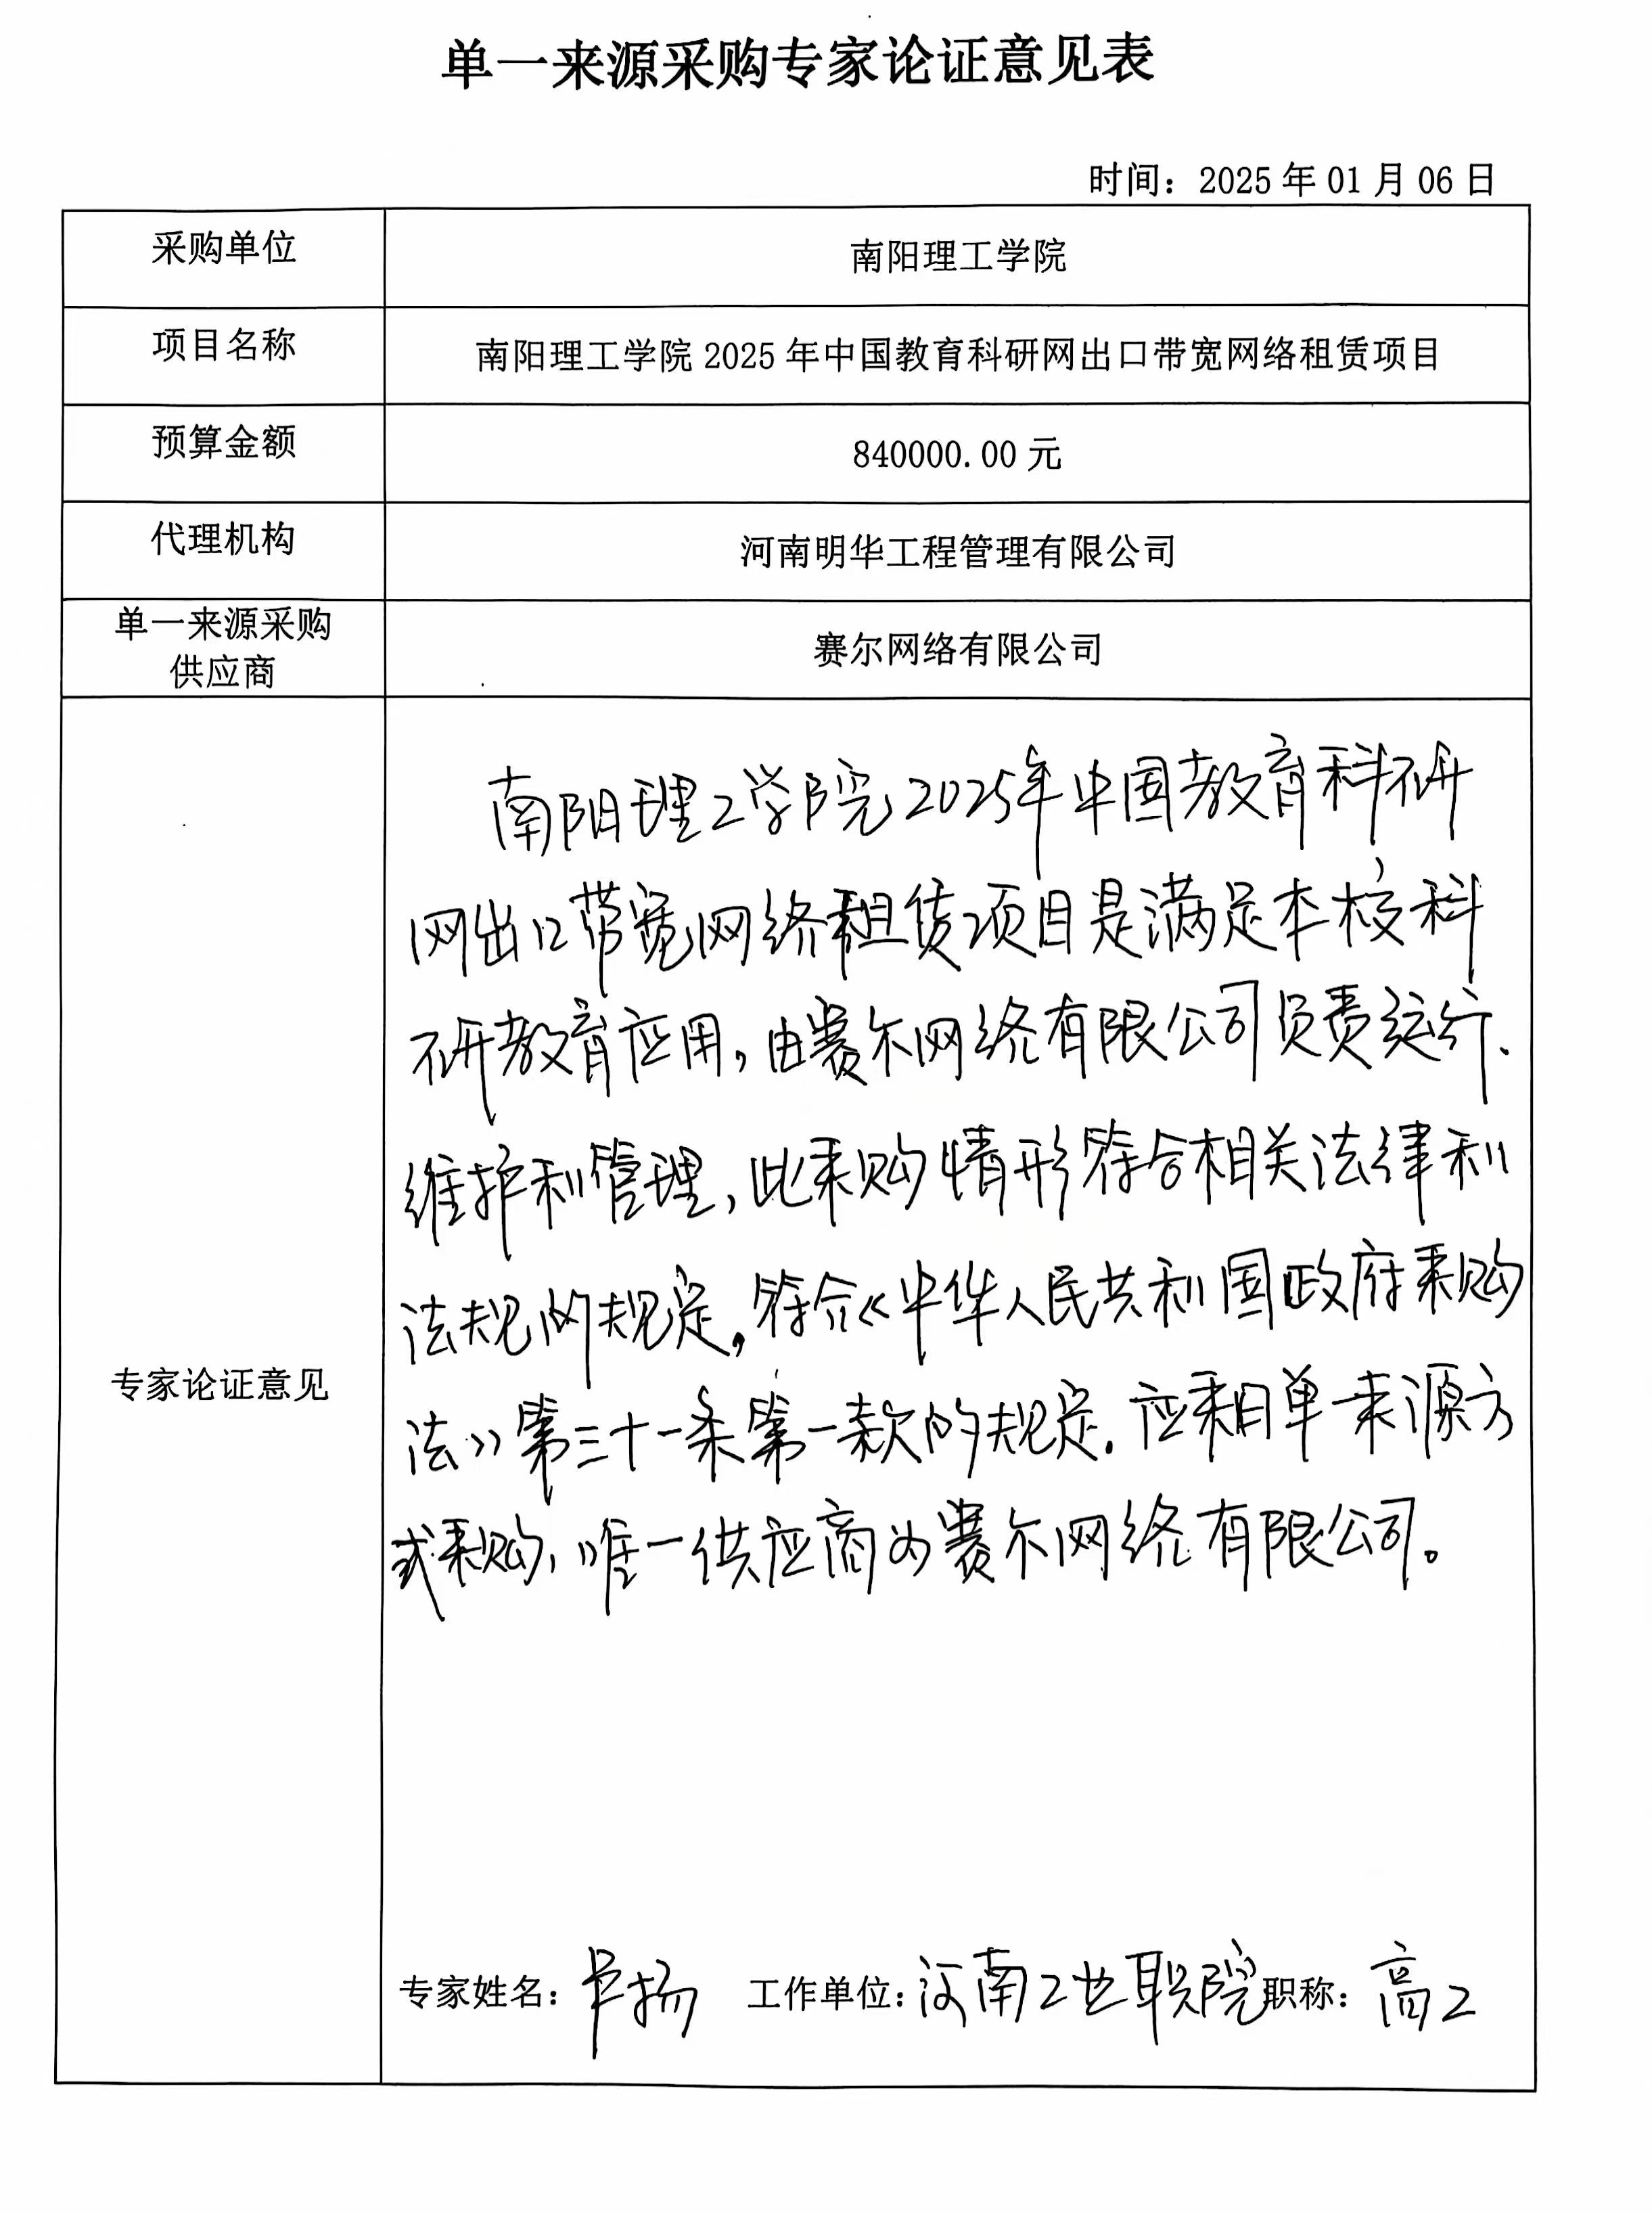 单一来源采购专家论证意见表
时间：2025年01月06日
采购单位
南阳理工学院
项目名称
南阳理工学院2025年中国教育科研网出口带宽网络租赁项目
预算金额
840000.00元
代理机构
河南明华工程管理有限公司
单一来源采购
供应商
赛尔网络有限公司
专家论证意见
南阳理工学院2025年中国教育科研
网出口带宽网络租赁项目是满足本校科
研教育应用，由赛尔网络有限公司负责运行、
维护和管理，此采购情形符合相关法律和
法规的规定，符合《中华人民共和国政府采购
法》第三十一条第一款的规定。应采用单一来源方
式采购，唯一供应商为赛尔网络有限公司。
专家姓名：扬 工作单位：河南工业职院 职称：高工